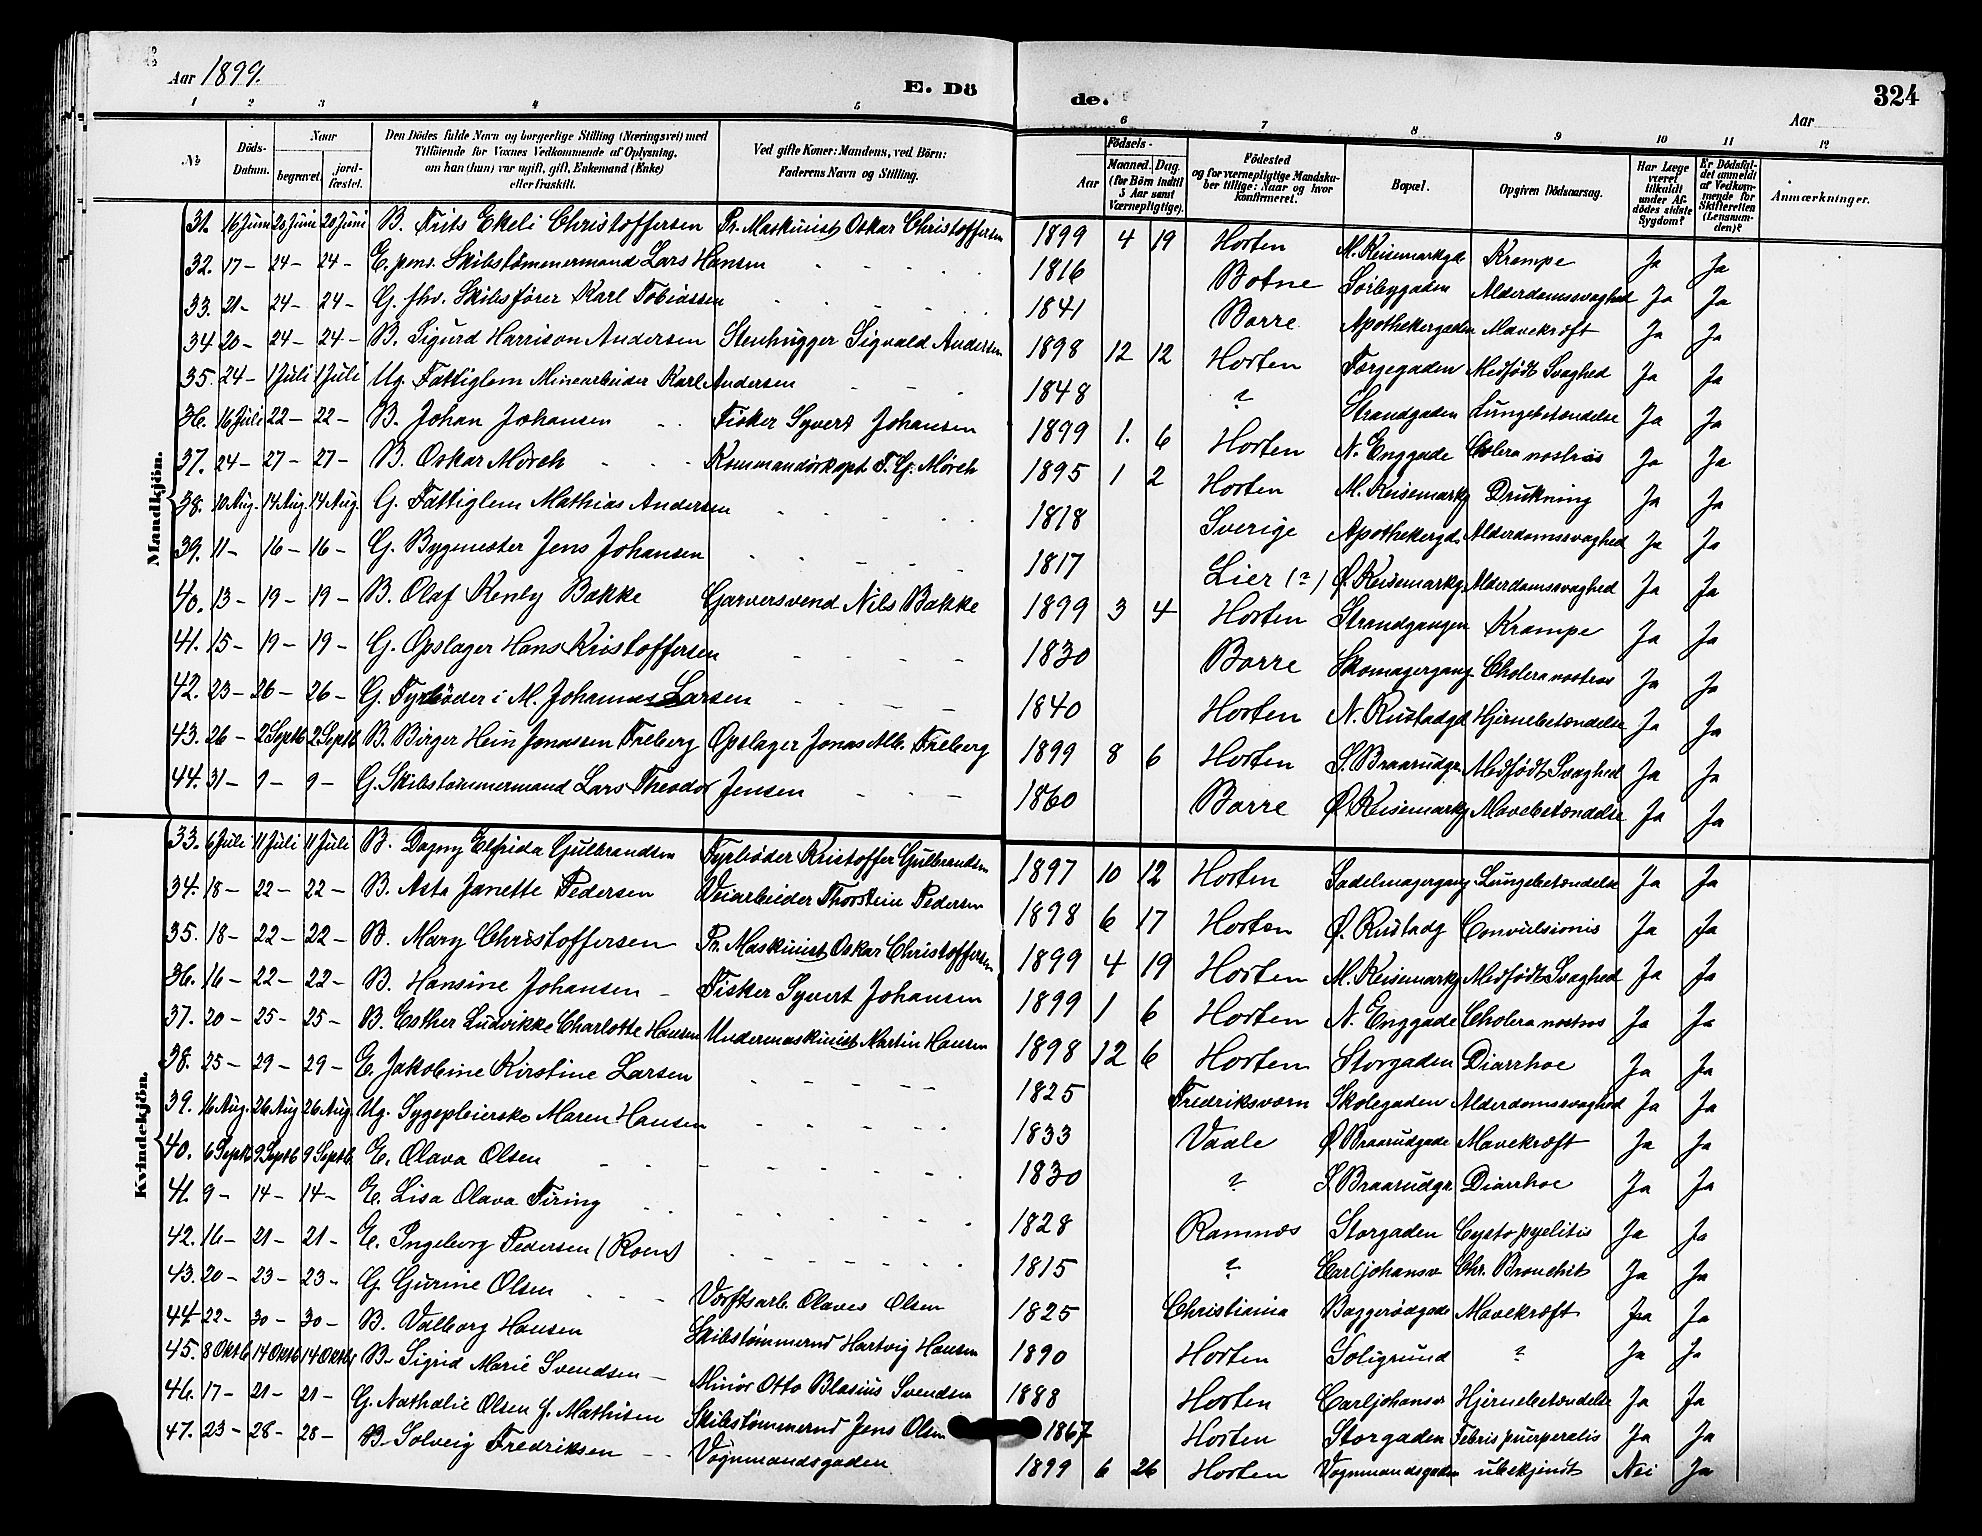 Aar 1899.
E. Dö
de.
Aar
324
1 2 3 4 5 6 7 8 9 10 11 12
№ Döds-Datum. Naar begravet. jord-fæstet. Den Dödes fulde Navn og borgerlige Stilling (Næringsvei) med Tilföiende for Voxnes Vedkommende af Oplysning, om han (hun) var ugift, gift, Enkemand (Enke) eller fraskilt. Ved gifte Koner: Mandens, ved Börn: Faderens Navn og Stilling. Födsels- Aar Maaned. Dag. (for Börn indtil 5 Aar samt Værnepligtige). Födested og for værnepligtige Mandskaber tillige: Naar og hvor konfirmeret. Bopæl. Opgiven Dödsaarsag. Har Læge været tilkaldt under Afdödes sidste Sygdom? Er Dödsfaldet anmeldt af Vedkommende for Skifteretten (Lensmanden)? Anmærkninger.
Mandkjön.
31. 16 Juni 20 Juni 20 Juni B. Frits Ekeli Christoffersen Pr. Maskinist Oskar Christoffersen 1899 4 19 Horten M. Keisemarkgd Krampe Ja Ja
32. 17 - 24 - 24 - E. pens. Skibstömmermand Lars Hansen 1816 Botne Sörbygaden Alderdomssvaghed Ja Ja
33. 21 - 24 - 24 - G. fhv. Skibsförer Karl Tobiassen 1841 Borre Apothekergaden Mavekræft Ja Ja
34 20 - 24 - 24 - B. Sigurd Harrison Andersen Stenhugger Sigvald Andersen 1898 12 12 Horten Torgegaden Medfödt Svaghed Ja Ja
35. 24 - 1 Juli 1 Juli Ug. Fattiglem Minearbeider Karl Andersen 1848 ? Strandgaden Lungebetændelse Ja Ja
36. 16 Juli 22 - 22 - B. Johan Johansen Fisker Syvert Johansen 1899 1. 6 Horten N. Enggade Colera nostras Ja Ja
37. 24 - 27 - 27 - B. Oskar Mörch Kommandörkapt. F. G. Mörch 1895 1 2 Horten M. Keisemarkg Drukning Ja Ja
38. 10 Aug. 14 Aug. 14 Aug. G. Fattiglem Mathias Andersen 1818 Sverige Apothekergd. Alderdomssvaghed Ja Ja
39. 11 - 16 - 16 - G. Bygmester Jens Johansen 1817 Lier (?) Ø. Keisemarkg. Alderdomssvaghed Ja Ja
40. 13 - 19 - 19 - B. Olaf Kenly Bakke Garversvend Nils Bakke 1899 3 4 Horten Strandgangen Krampe Ja Ja
41. 15 - 19 - 19 - G. Opslager Hans Kristoffersen 1830 Borre Skomagergang Cholera nostras Ja Ja
42. 23 - 26 - 26 - G. Fyrböder i M. Johannes Larsen 1840 Horten N. Rustadgd Hjernebetændelse Ja Ja
43. 26 - 2 Septb 2 Septb. B. Birger Hein Jonassen Freberg Opslager Jonas Alb. Freberg 1899 8 6 Horten S. Braarudgr. Medfödt Svaghed Ja Ja
44. 31 - 9 - 9 - G. Skibstömmermand Lars Theodor Jensen 1860 Borre Ø. Keisemarkg Mavebetændelse Ja Ja
Kvindekjön.
33. 6 Juli 11 Juli 11 Juli B. Dagny Elfrida Gulbrandsen Fyrböder Kristoffer Gulbrandsen 1897 10 12 Horten Sadelmagergang. Lungebetændelse Ja Ja
34. 18 - 22 - 22 - B. Asta Janette Pedersen Veiarbeider Thorstein Pedersen 1898 6 17 Horten Ø. Rustadg Convulsionis Ja Ja
35. 18 - 22 - 22 - B. Mary Christoffersen Pr. Maskinist Oskar Christoffersen 1899 4 19 Horten M. Keisemarkg Medfödt Svaghed Ja Ja
36. 16 - 22 - 22 - B. Hansine Johansen Fisker Syvert Johansen 1899 1 6 Horten N. Enggade Cholera nostras Ja Ja
37. 20 - 25 - 25 - B. Esther Ludvikke Charlotte Hansen Undermaskinist Martin Hansen 1898 12 6 Horten Storgaden Diarrhoe Ja Ja
38. 25 - 29 - 29 - E. Jakobine Kirstine Larsen 1825 Fredriksværn Skolegaden Alderdomssvaghed Ja Ja
39. 16 Aug. 26 Aug 26 Aug. Ug. Sygepleierske Maren Hansen 1833 Vaale Ø Braarudgade Mavekræft Ja Ja
40. 6 Septb 9 Septb 9 Septb. E. Olava Olsen 1830 ? S Braarudgr Diarrhoe Ja Ja
41. 9 - 14 - 14 - E. Lisa Olava Firing 1828 Ramnes Storgaden Cysto pyelitis Ja Ja
42. 16 - 21 - 21 - E. Ingeborg Pedersen (Roen) 1815 ? Carljohansv Chr. Bronchit Ja Ja
43. 20 - 23 - 23 - G. Gurine Olsen Værftsarb. Olaves Olsen 1825 Christiania Baggerödgade Mavekræft Ja Ja
44. 22 - 30 - 30 - B. Valborg Hansen Skibstömmermd Hartvig Hansen 1890 Horten Soligrund ? Ja Ja
45. 8 Oktb 14 Oktb 14 Oktb B. Sigrid Marie Svendsen Minör Otto Blasius Svendsen 1888 Horten Carljohansv Hjernebetændelse Ja Ja
46. 17 - 21 - 21 - G. Nathalie Olsen f. Mathisen Skibstömmermd Jens Olsen 1867 Horten Storgaden Febris puerperalis Ja Ja
47. 23 - 28 - 28 - B. Solveig Fredriksen Vognmandsgaden 1899 6 26 Horten Vognmandsgaden ubekjendt Nei Ja